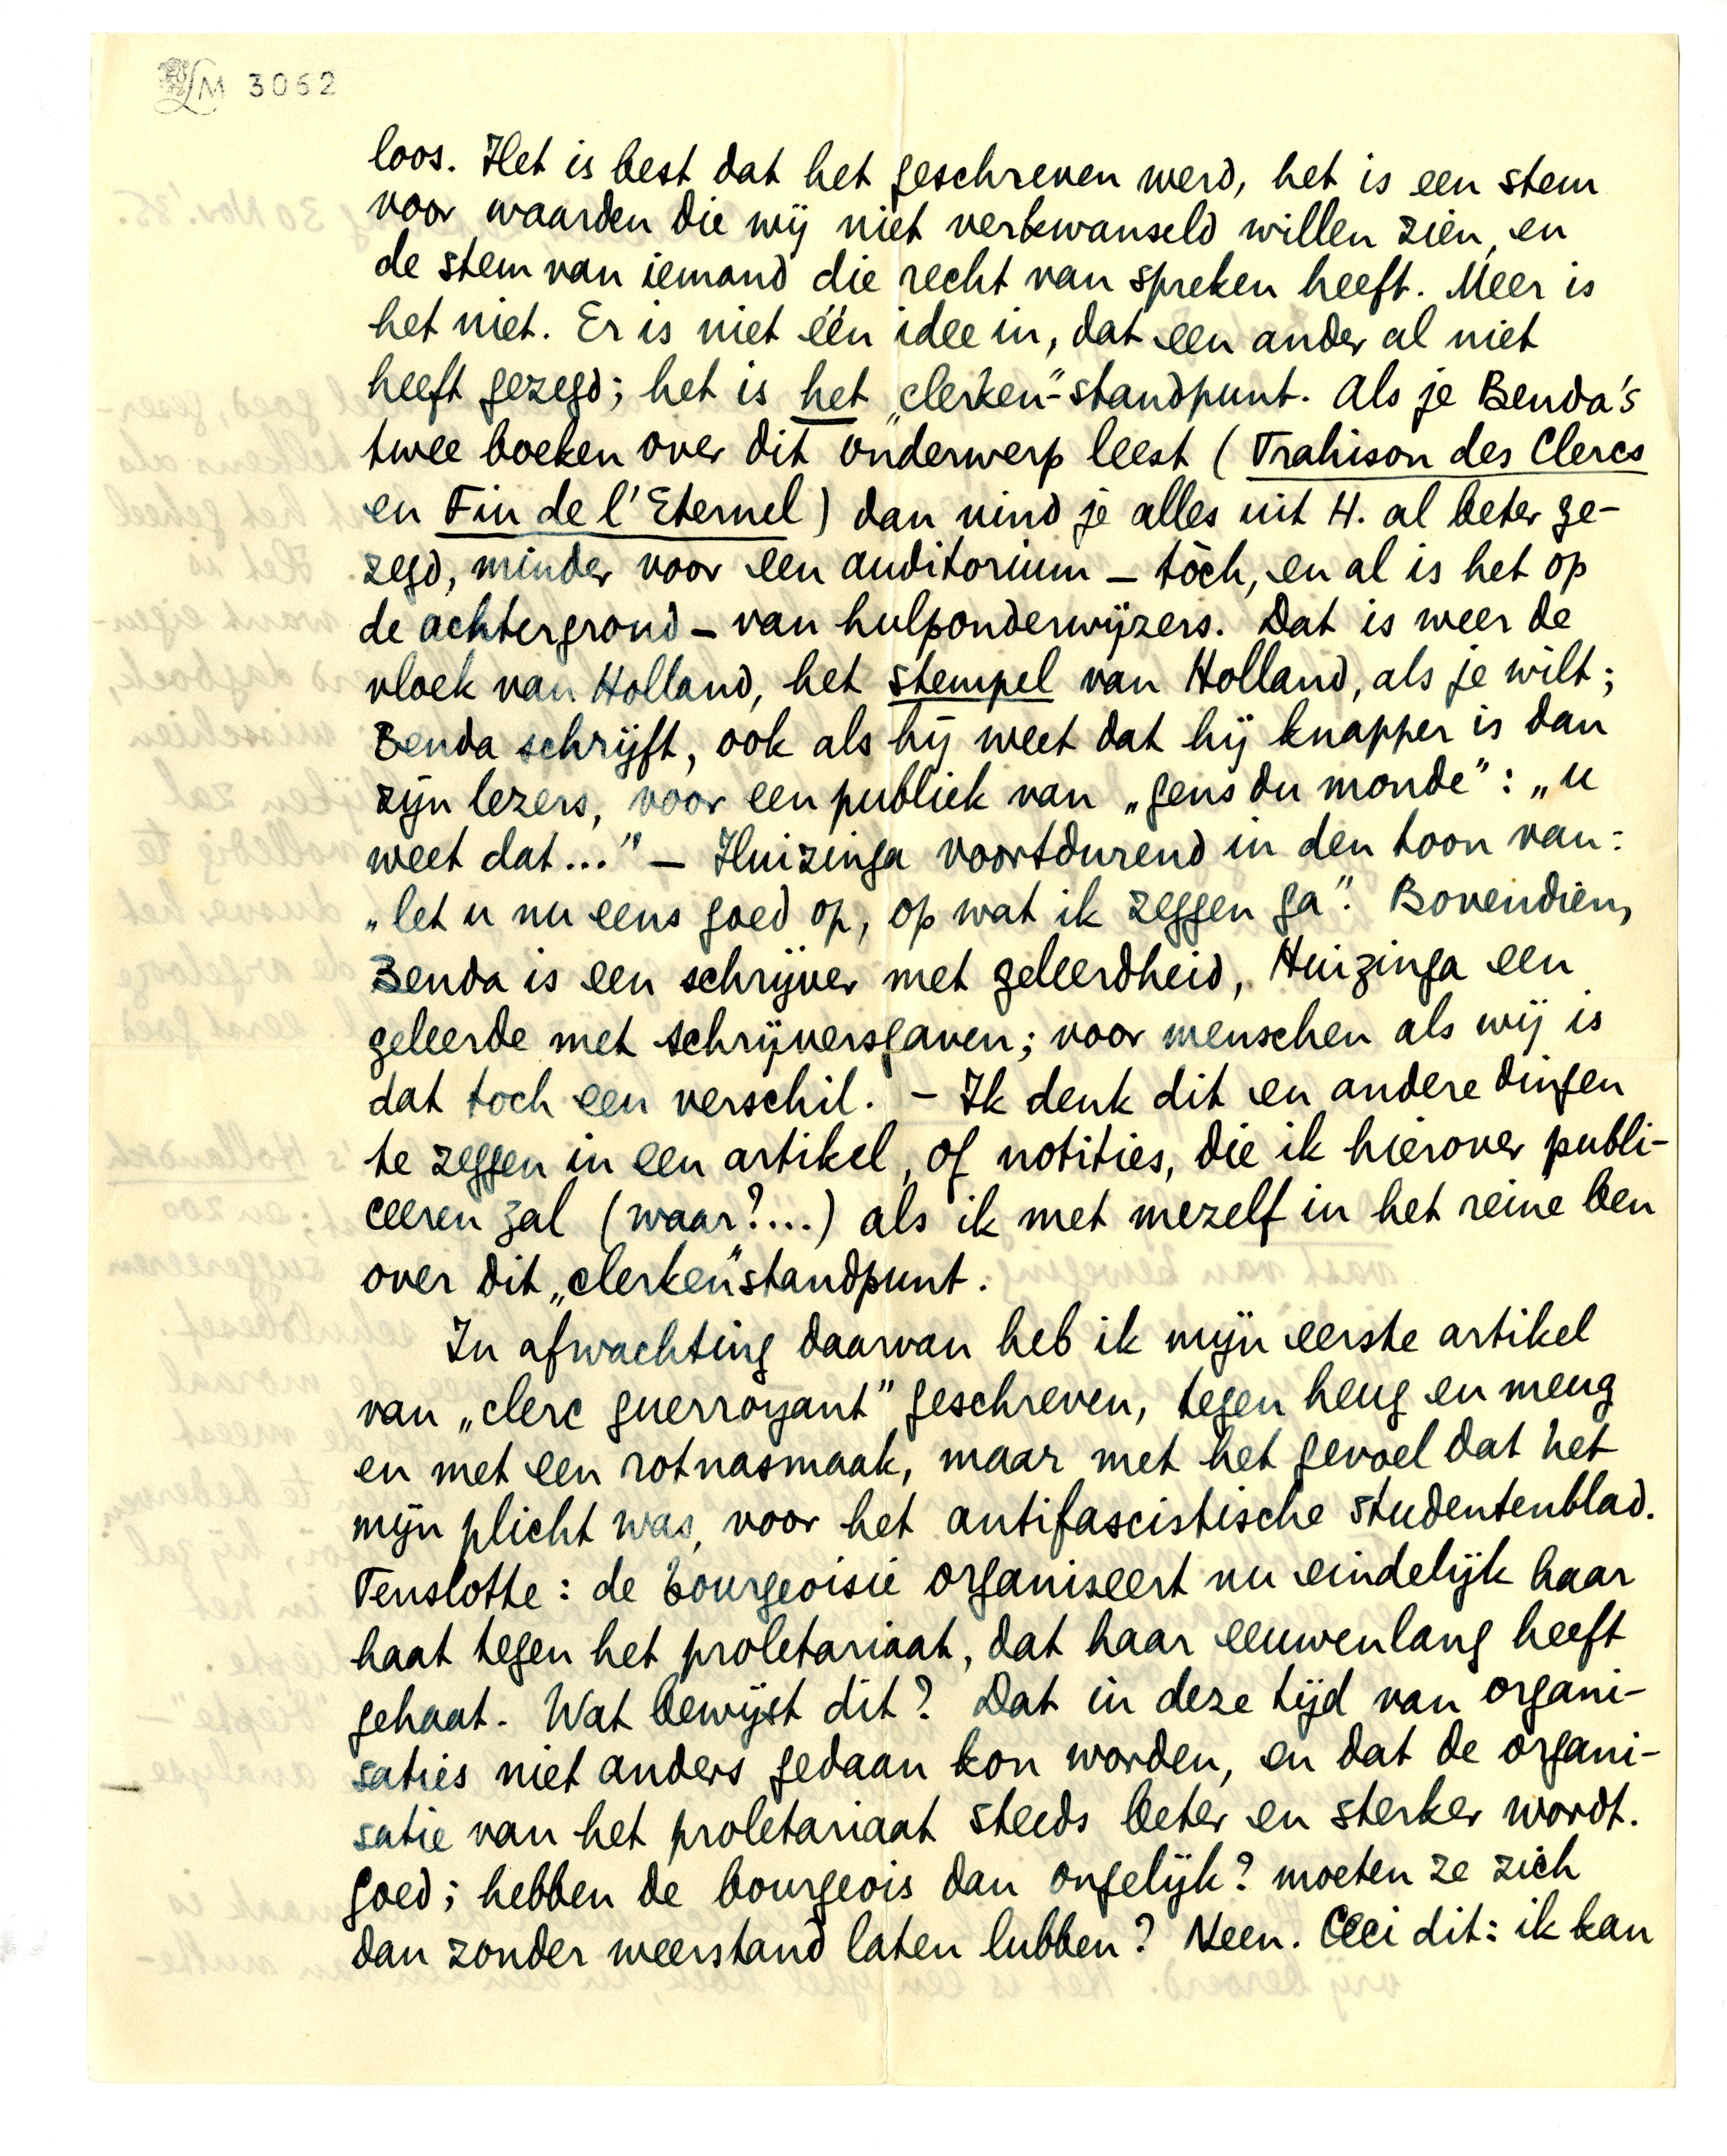 LM 3062
loos. Het is best dat het geschreven werd, het is een stem
voor waarden die wij niet verkwanseld willen zien, en
de stem van iemand die recht van spreken heeft. Meer is
het niet. Er is niet één idee in, dat een ander al niet
heeft gezegd; het is het „clerken"-standpunt. Als je Benda's
twee boeken over dit onderwerp leest (Trahison des Clercs
en Fin de l'Eternel) dan vind je alles uit H. al beter ge-
zegd, minder voor een auditorium – tòch, en al is het op
de achtergrond – van hulponderwijzers. Dat is weer de
vloek van Holland, het stempel van Holland, als je wilt;
Benda schrijft, ook als hij weet dat hij knapper is dan
zijn lezers, voor een publiek van „gens du monde": „u
weet dat..." – Huizinga voortdurend in den toon van:
„let u nu eens goed op, op wat ik zeggen ga". Bovendien,
Benda is een schrijver met geleerdheid, Huizinga een
geleerde met schrijversgaven; voor menschen als wij is
dat toch een verschil. – Ik denk dit en andere dingen
te zeggen in een artikel, of notities, die ik hierover publi-
ceeren zal (waar?...) als ik met mezelf in het reine ben
over dit „clerken"standpunt.
In afwachting daarvan heb ik mijn eerste artikel
van „clerc guerroyant" geschreven, tegen heug en meug
en met een rotnasmaak, maar met het gevoel dat het
mijn plicht was, voor het antifascistische studentenblad.
Tenslotte: de bourgeoisie organiseert nu eindelijk haar
haat tegen het proletariaat, dat haar eeuwenlang heeft
gehaat. Wat bewijst dit? Dat in deze tijd van organi-
saties niet anders gedaan kon worden, en dat de organi-
satie van het proletariaat steeds beter en sterker wordt.
Goed; hebben de bourgeois dan ongelijk? moeten ze zich
dan zonder weerstand laten lubben? Neen. Ceci dit: ik kan